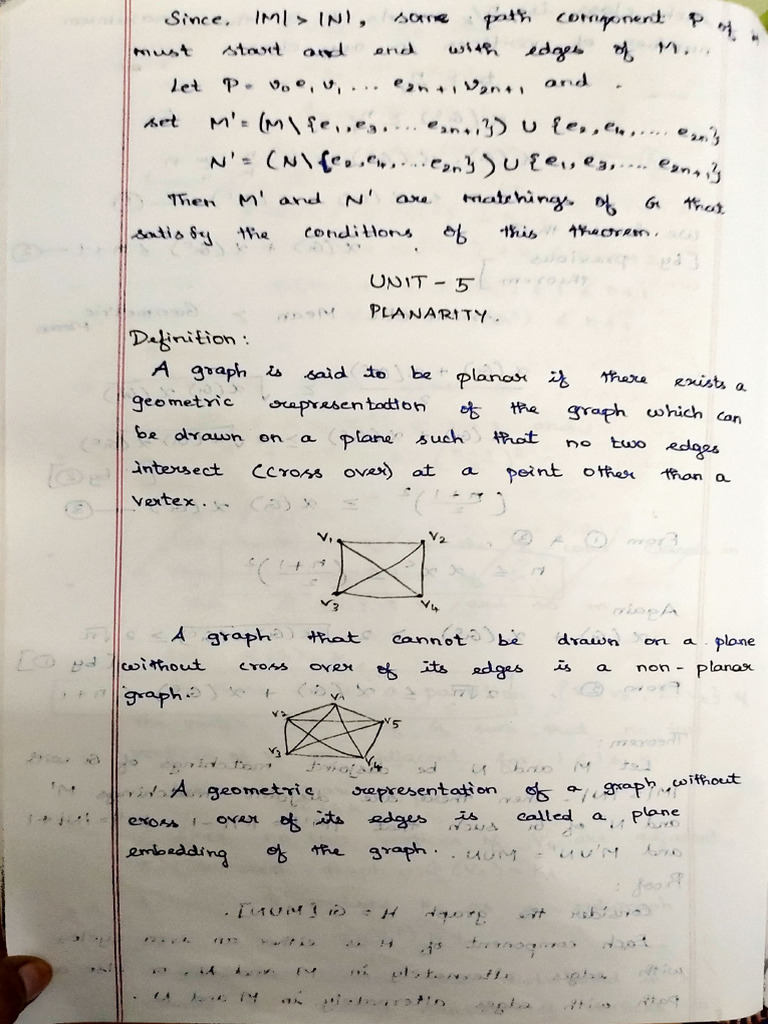 Since, |M| > |N|, some path component P of H
must start and end with edges of M.
Let P = v0 e1 v1 ... e2n+1 v2n+1 and
set M' = (M \ {e1, e3, ... e2n+1}) ∪ {e2, e4, ... e2n}
N' = (N \ {e2, e4, ... e2n}) ∪ {e1, e3, ... e2n+1}
Then M' and N' are matchings of G that
satisfy the conditions of this theorem.
UNIT - 5
PLANARITY.
Definition:
A graph is said to be planar if there exists a
geometric representation of the graph which can
be drawn on a plane such that no two edges
intersect (cross over) at a point other than a
vertex.
V1 V2
V3 V4
A graph that cannot be drawn on a plane
without cross over of its edges is a non-planar
graph.
V1
V2 V5
V3 V4
A geometric representation of a graph without
cross over of its edges is called a plane
embedding of the graph.